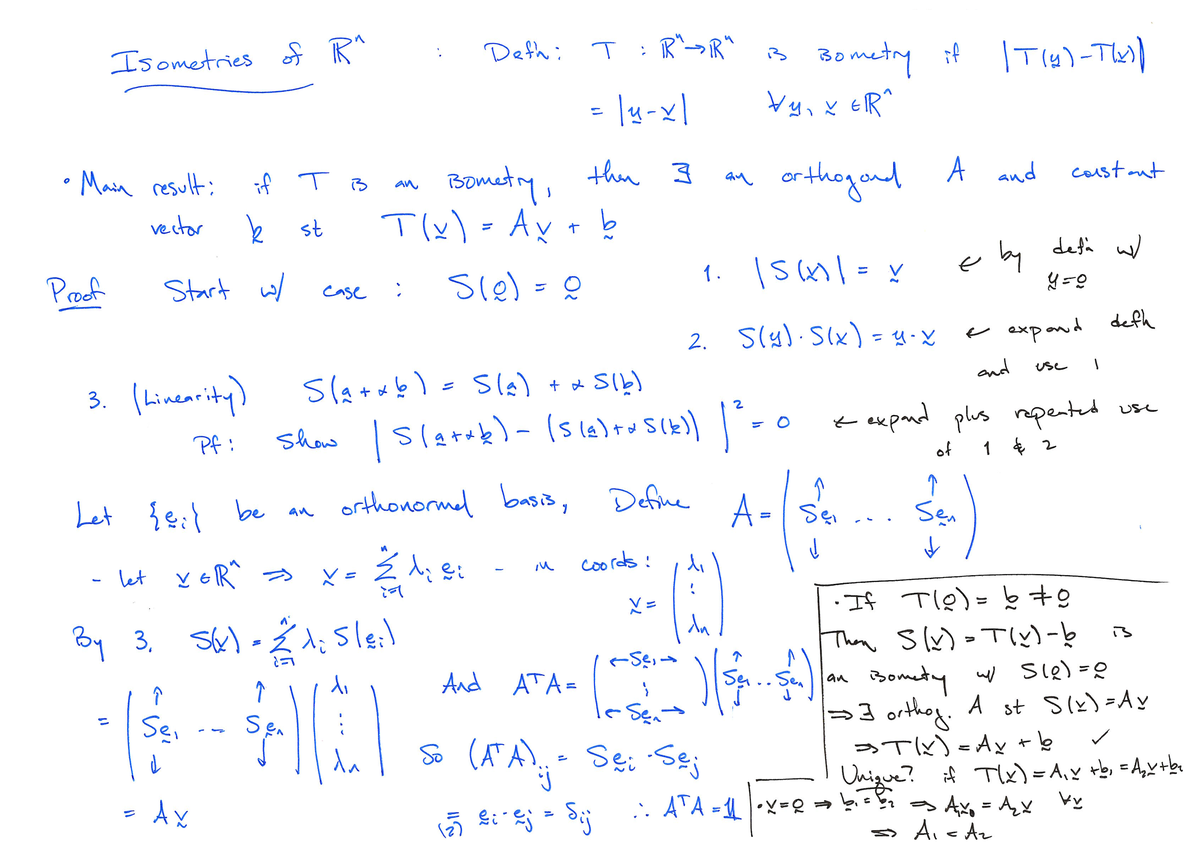 Isometries of ℝⁿ : Defn: T : ℝⁿ→ℝⁿ is isometry if |T(y)-T(x)|
= |y-x| ∀y, x ∈ℝⁿ
• Main result: if T is an isometry, then ∃ an orthogonal A and constant
vector b st T(x) = Ax + b
Proof Start w/ case : S(0) = 0
1. |S(x)| = x ← by defn w/ y=0
2. S(y)·S(x) = y·x ← expand defn and use 1
3. (Linearity) S(a+αb) = S(a) + α S(b)
Pf: Show |S(a+αb) - (S(a)+αS(b))|² = 0 ← expand plus repeated use of 1 & 2
Let {eᵢ} be an orthonormal basis, Define A = (↑ Se₁ ↓ ... ↑ Seₙ ↓)
- let x ∈ℝⁿ ⇒ x = Σᵢ₌₁ⁿ λᵢ eᵢ - in coords: x = (λ₁ ⋮ λₙ)
By 3. S(x) = Σᵢ₌₁ⁿ λᵢ S(eᵢ)
= (↑ Se₁ ↓ --- ↑ Seₙ ↓) (λ₁ ⋮ λₙ)
= Ax
And AᵀA = (←Se₁→ ⋮ ←Seₙ→) (↑ Se₁ ↓ .. ↑ Seₙ ↓)
So (AᵀA)ᵢⱼ = Seᵢ·Seⱼ
=(2) eᵢ·eⱼ = δᵢⱼ ∴ AᵀA = 𝟙
• If T(0) = b ≠ 0
Then S(x) = T(x)-b is
an isometry w/ S(0) = 0
⇒ ∃ orthog. A st S(x) = Ax
⇒ T(x) = Ax + b ✓
Unique? if T(x) = A₁x + b₁ = A₂x + b₂
• x=0 ⇒ b₁ = b₂ ⇒ A₁x = A₂x ∀x
⇒ A₁ = A₂